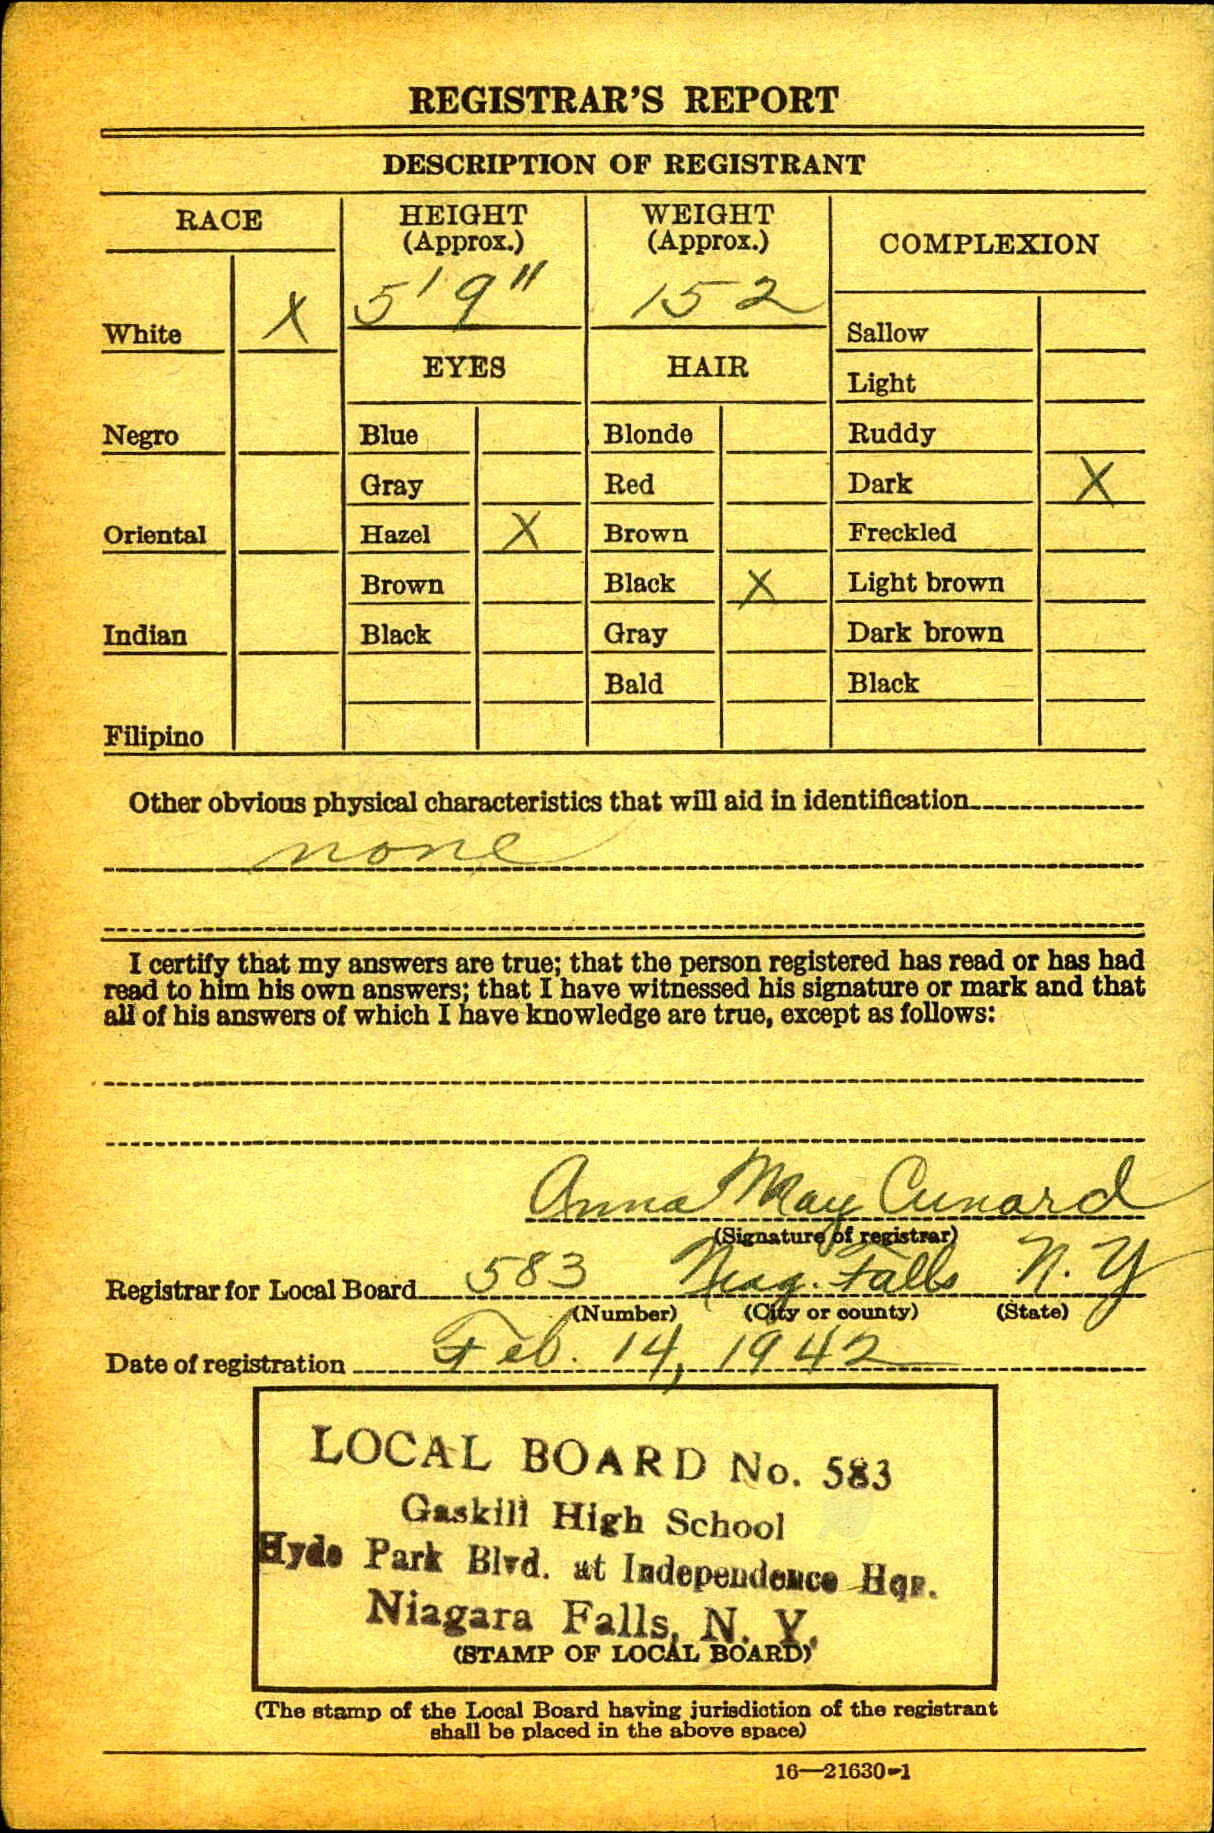 REGISTRAR'S REPORT
DESCRIPTION OF REGISTRANT
RACE
HEIGHT
(Approx.)
WEIGHT
(Approx.)
COMPLEXION
5' 9"
152
White X
EYES
HAIR
Sallow
Light
Negro
Blue
Blonde
Ruddy
Gray
Red
Dark X
Oriental
Hazel X
Brown
Freckled
Brown
Black X
Light brown
Indian
Black
Gray
Dark brown
Bald
Black
Filipino
Other obvious physical characteristics that will aid in identification
none
I certify that my answers are true; that the person registered has read or has had
read to him his own answers; that I have witnessed his signature or mark and that
all of his answers of which I have knowledge are true, except as follows:
Anna May Cunard
(Signature of registrar)
Registrar for Local Board 583 Niag. Falls N. Y
(Number) (City or county) (State)
Date of registration Feb. 14, 1942
LOCAL BOARD No. 583
Gaskill High School
Hyde Park Blvd. at Independence Hqr.
Niagara Falls, N. Y.
(STAMP OF LOCAL BOARD)
(The stamp of the Local Board having jurisdiction of the registrant
shall be placed in the above space)
16—21630-1